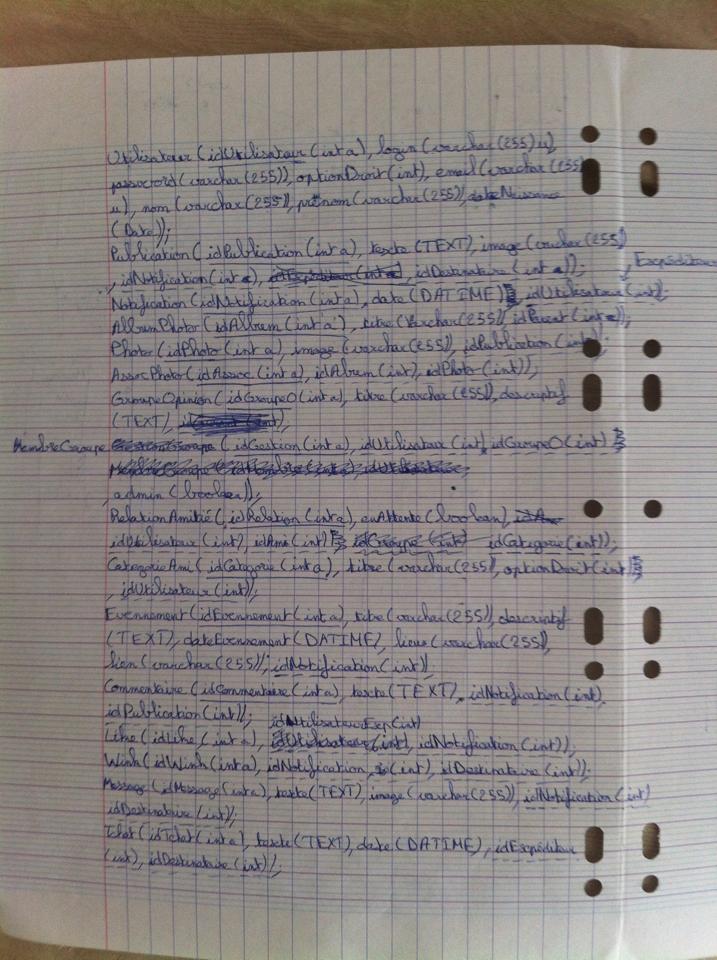 Utilisateur (idUtilisateur (int a), login (varchar (255) u),
password (varchar (255)), optionDroit (int), email (varchar (255)
u), nom (varchar (255)), prénom (varchar (255)), dateNaissance
(Date));
Publication (idPublication (int a), texte (TEXT), image (varchar (255))
, idNotification (int a), idExpéditeur (int a), idDestinataire (int a));
Expéditeur
Notification (idNotification (int a), date (DATIME), idUtilisateur (int));
AlbumPhoto (idAlbum (int a), titre (Varchar (255)), idParent (int a));
Photo (idPhoto (int a), image (varchar (255)), idPublication (int));
AssocPhoto (idAssoc (int a), idAlbum (int), idPhoto (int));
GroupeOpinion (idGroupeO (int a), titre (varchar (255)), descriptif
(TEXT),
MembreGroupe (idGestion (int a), idUtilisateur (int), idGroupeO (int)
admin (boolean));
RelationAmitié (idRelation (int a), enAttente (boolean),
idUtilisateur (int), idAmi (int), idGroupe (int) idCategorie (int));
CategorieAmi (idCategorie (int a), titre (varchar (255)), optionDroit (int)
, idUtilisateur (int));
Evennement (idEvennement (int a), titre (varchar (255)), descriptif
(TEXT), dateEvennement (DATIME), lieu (varchar (255)),
lien (varchar (255)), idNotification (int));
Commentaire (idCommentaire (int a), texte (TEXT), idNotification (int),
idPublication (int)); idUtilisateurExp (int)
Like (idLike (int a), idUtilisateur (int), idNotification (int));
Wink (idWink (int a), idNotification (int), idDestinataire (int));
Message (idMessage (int a), texte (TEXT), image (varchar (255)), idNotification (int)
idDestinataire (int));
Tchat (idTchat (int a), texte (TEXT), date (DATIME), idExpéditeur
(int), idDestinataire (int));